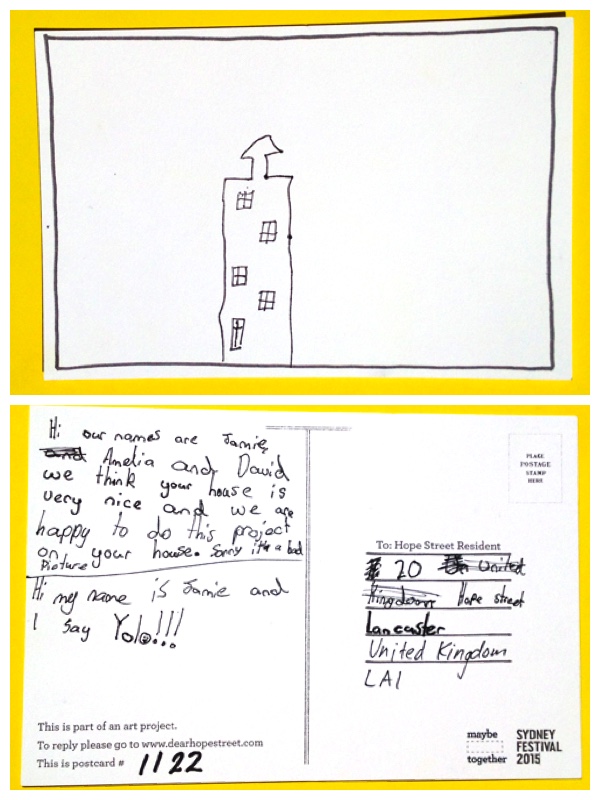 Hi our names are Jamie,
and Amelia and David
we think your house is
very nice and we are
happy to do this project
on your house. Sorry it's a bad
Picture
Hi my name is Jamie and
I say Yolo!!!
This is part of an art project.
To reply please go to www.dearhopestreet.com
This is postcard # 1122
PLACE
POSTAGE
STAMP
HERE
To: Hope Street Resident
20 United
Kingdom Hope street
Lancaster
United Kingdom
LA1
maybe
together
SYDNEY
FESTIVAL
2015